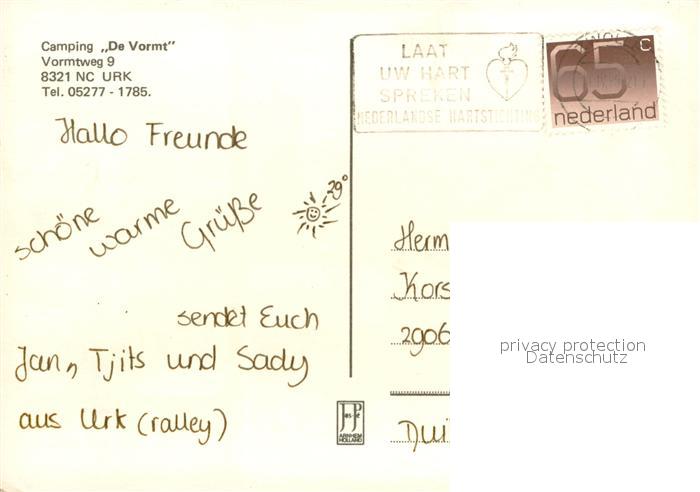 Camping „De Vormt"
Vormtweg 9
8321 NC URK
Tel. 05277 - 1785.
LAAT
UW HART
SPREKEN
NEDERLANDSE HARTSTICHTING
65 c
nederland
Hallo Freunde
schöne warme Grüße
29°
sendet Euch
Jan, Tjits und Sady
aus Urk (ralley)
Herm
Kors
2906
Dui
JosPé
ARNHEM
HOLLAND
privacy protection
Datenschutz